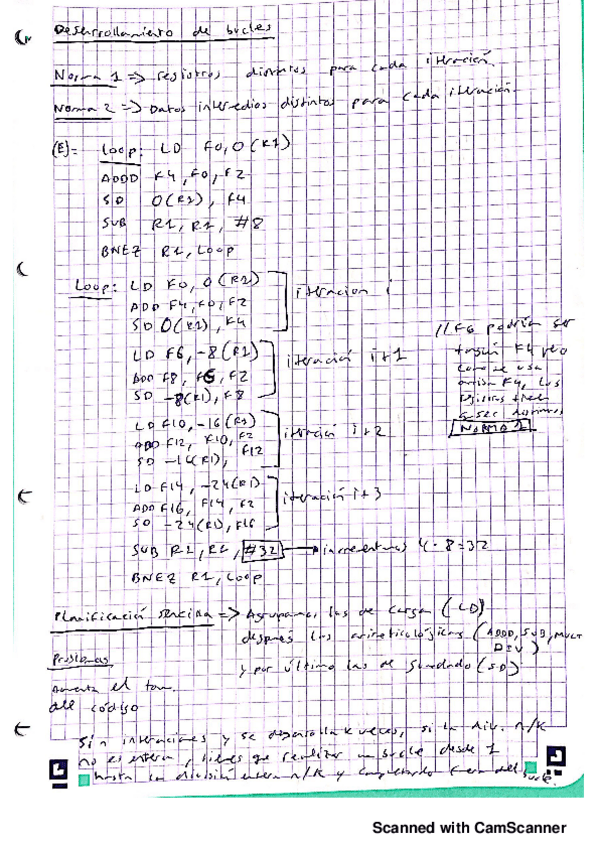 Desenrollamiento de bucles
Norma 1 => registros distintos para cada iteración.
Norma 2 => Datos intermedios distintos para cada iteración.
(E)= Loop: LD F0,0(R1)
ADDD F4,F0,F2
SD 0(R1), F4
SUB R1, R1, #8
BNEZ R1, Loop
Loop: LD F0, 0(R1)
ADD F4,F0,F2
SD 0(R1), F4
iteracion i
LD F6, -8(R1)
ADD F8, F6, F2
SD -8(R1), F8
iteración i+1
LD F10, -16(R1)
ADD F12, F10, F2
SD -16(R1), F12
iteración i+2
LD F14, -24(R1)
ADD F16, F14, F2
SD -24(R1), F16
iteración i+3
//F6 podría ser
también F4 pero
como se usa
F4, los
registros tienen
q ser distintos
NORMA 1
SUB R1, R1, #32 → incrementamos 4·8=32
BNEZ R1, Loop
Planificación sencilla => Agrupamos las de carga (LD)
después las aritmeticológicas (ADDD, SUB, MULT
DIV)
y por último las de guardado (SD)
Problemas
Aumenta el tam.
del código
Si n interaciones y se desarrolla k veces, si la div. n/k
no es entera, tienes que realizar un bucle desde 1
hasta la división entera n/k y completarlo fuera del bucle.
Scanned with CamScanner